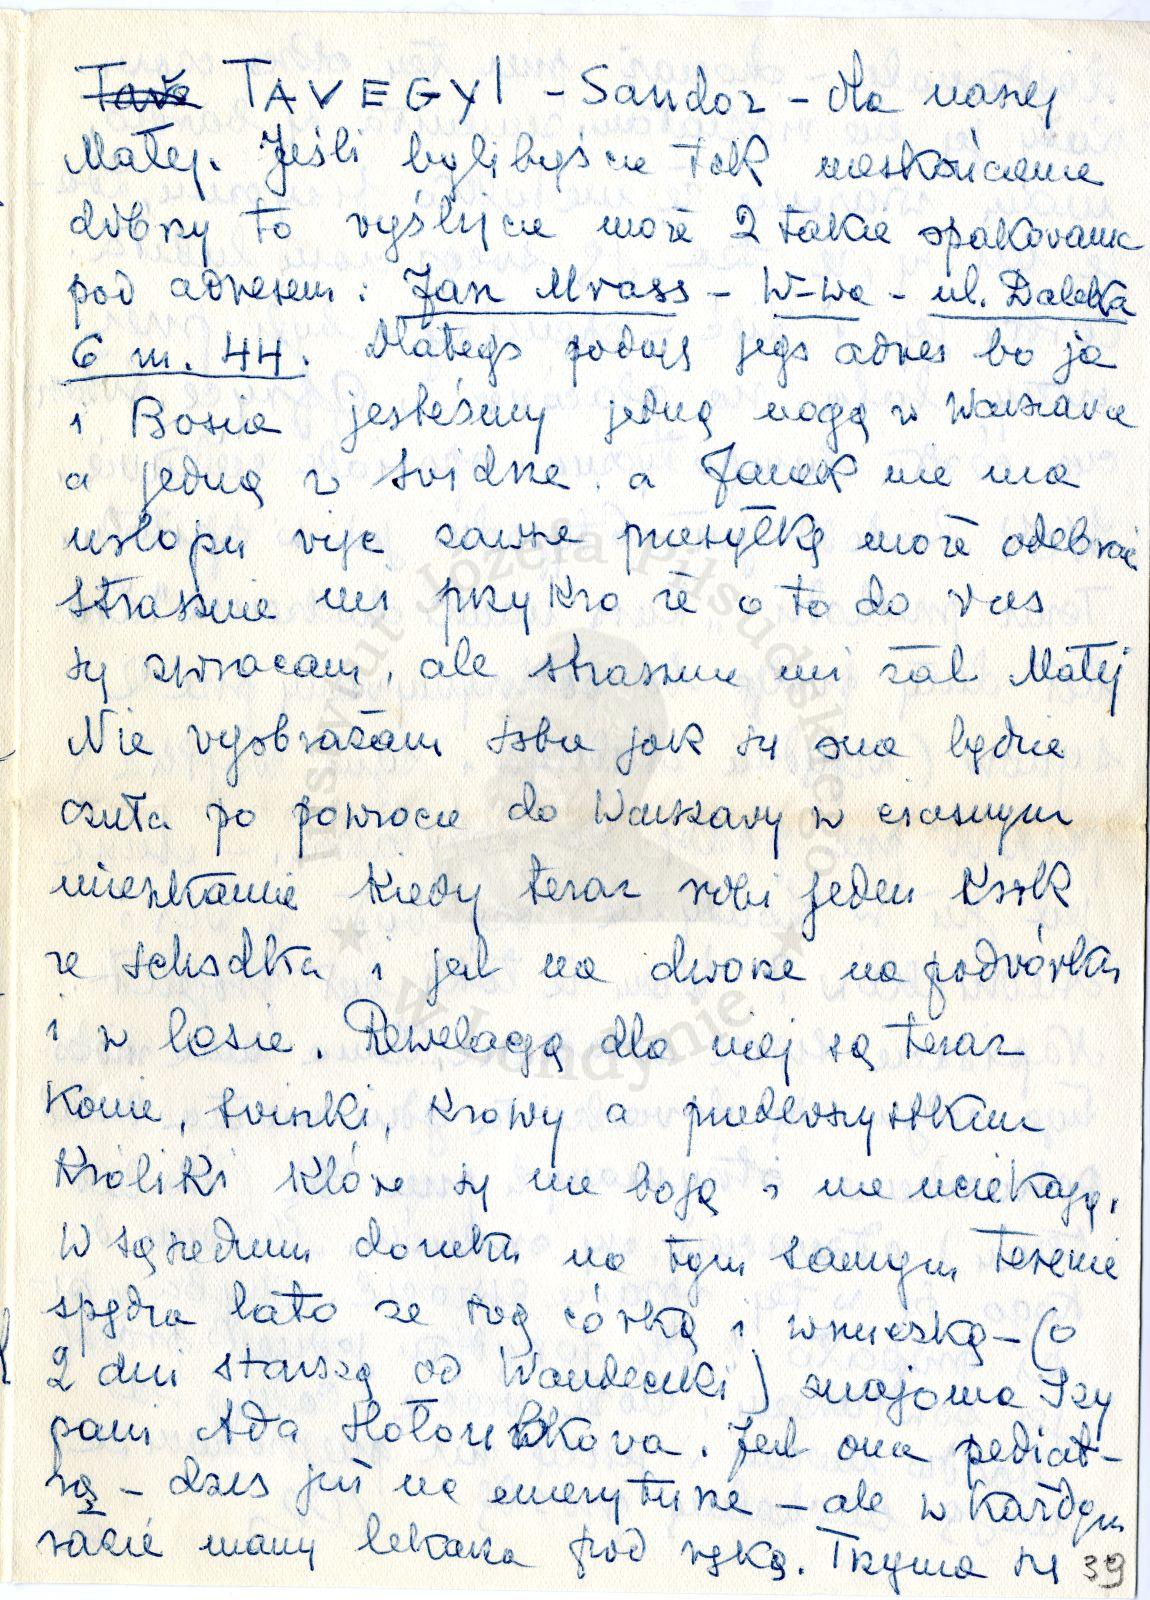 Tave TAVEGYl - Sandoz - dla naszej
Małej. Jeśli bylibyście tak nieskończenie
dobrzy to wyślijcie może 2 takie opakowanie
pod adresem: Jan Mrass - W-wa - ul. Daleka
6 m. 44. Dlatego podaję jego adres bo ja
i Bosia jesteśmy jedną nogą w Warszawie
a jedną w Świdrze, a Janek nie ma
urlopu więc zawsze przesyłkę może odebrać
Strasznie mi przykro że o to do Was
się zwracam, ale strasznie mi żal Małej
Nie wyobrażam sobie jak się ona będzie
czuła po powrocie do Warszawy w ciasnym
mieszkaniu kiedy teraz robi jeden krok
ze schodka i jest na dworze na podwórku
i w lesie. Rewelacją dla niej są teraz
konie, świnki, krowy a przedewszystkim
króliki które się nie boją i nie uciekają.
W sąsiednim domku na tym samym terenie
spędza lato ze swą córką i wnuczką - (o
2 dni starszą od Wandeczki) znajoma Izy
pani Ada . Jest ona pediat-
rą - dziś już na emeryturze - ale w każdym
razie mamy lekarza pod ręką. Trzyma się
39
Instytut Józefa Piłsudskiego
w Londynie